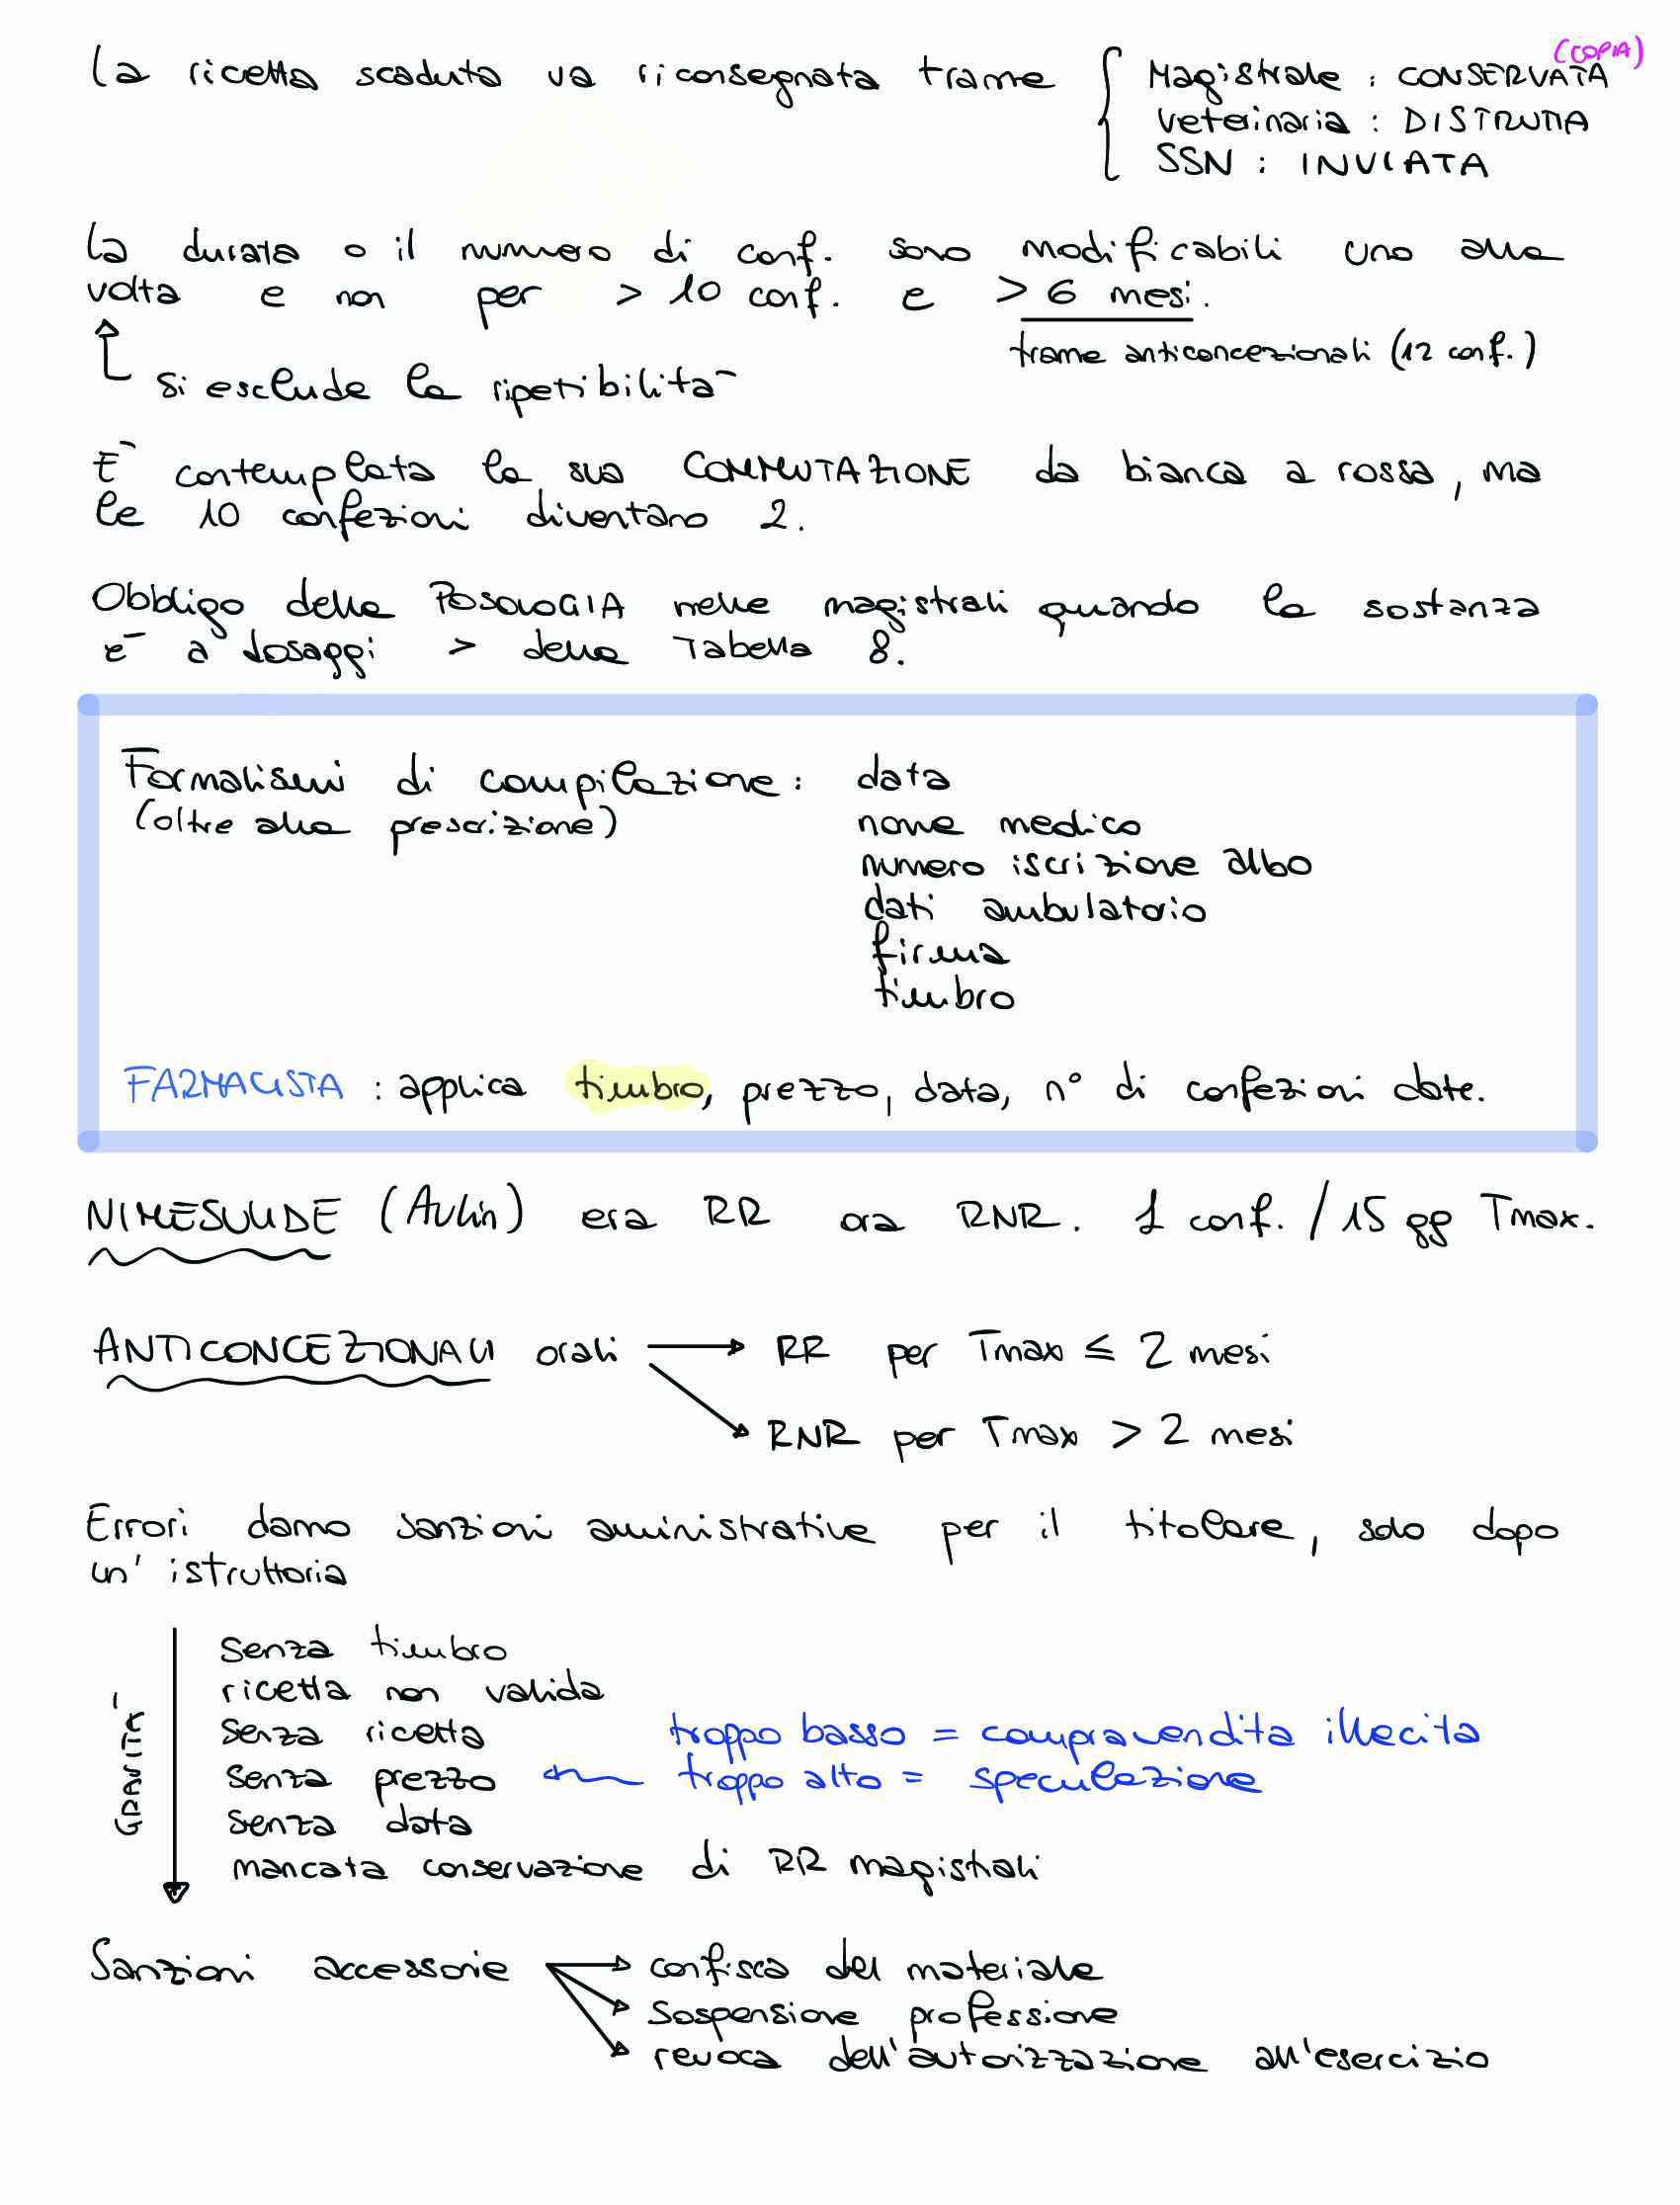 La ricetta scaduta va riconsegnata tranne { Magistrale : CONSERVATA (COPIA)
Veterinaria : DISTRUTTA
SSN : INVIATA
La durata o il numero di conf. sono modificabili uno alla
volta e non per > 10 conf. e > 6 mesi.
tranne anticoncezionali (12 conf.)
si esclude la ripetibilità
È contemplata la sua COMMUTAZIONE da bianca a rossa, ma
le 10 confezioni diventano 2.
Obbligo della POSOLOGIA nelle magistrali quando la sostanza
è a dosaggi > della Tabella 8.
Formalismi di compilazione : data
(oltre alla prescrizione) nome medico
numero iscrizione albo
dati ambulatorio
firma
timbro
FARMACISTA : applica timbro, prezzo, data, n° di confezioni date.
NIMESULIDE (Aulin) era RR ora RNR. 1 conf. / 15 gg Tmax.
ANTICONCEZIONALI orali → RR per Tmax ≤ 2 mesi
→ RNR per Tmax > 2 mesi
Errori danno sanzioni amministrative per il titolare, solo dopo
un' istruttoria
GRAVITÀ
senza timbro
ricetta non valida
senza ricetta troppo basso = compravendita illecita
senza prezzo ← troppo alto = speculazione
senza data
mancata conservazione di RR magistrali
Sanzioni accessorie → confisca del materiale
→ sospensione professione
→ revoca dell'autorizzazione all'esercizio